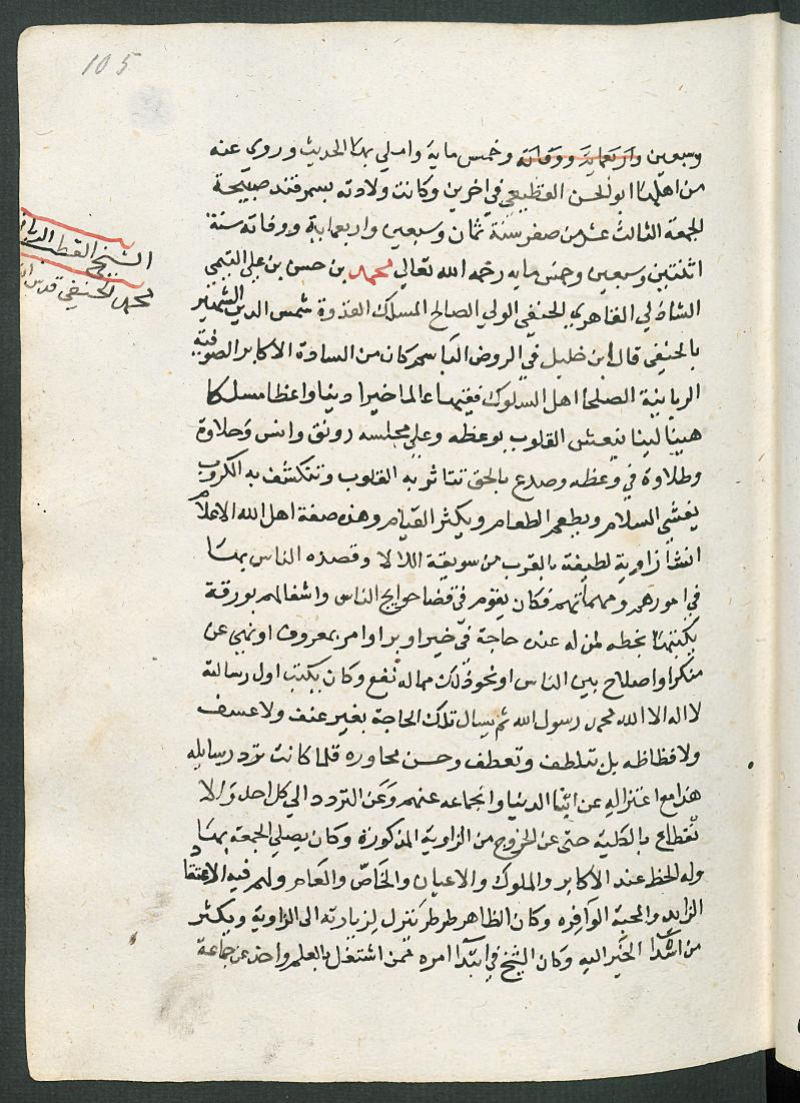 105
وسبعين واربعماية ووفاته وخمس ماية واملي بهذا الحديث وروي عنه
من اهلها ابو الحسن القطيعي في اخرين وكانت ولادته بسمرقند صبيحة
الجمعة الثالث عشر من صفر سنة ثمان وسبعين واربعماية ووفاته سنة
اثنتين وسبعين وخمس مايه رحمه الله تعالي محمد بن حسن بن علي التيمي
الشاذلي القاهري الحنفي الولي الصالح المسلك القدوة شمس الدين الشهير
بالحنفي قال ابن خليل في الروض الباسم كان من السادة الاكابر الصوفية
الربانية الصلحا اهل السلوك فقيها عالما خيرا دينا واعظا مسلكا
هينا لينا تنعش القلوب بوعظه وعلي مجلسه رونق وانس وحلاوة
وطلاوة في وعظه وصدع بالحق تتاثر به القلوب وتنكشف به الكروب
يفشي السلام ويطعم الطعام ويكثر القيام وهذه صفة اهل الله الاعلام
انشأ زاوية لطيفة بالقرب من سويقة اللالا وقصده الناس بها
في امورهم ومهماتهم فكان يقوم في قضا حوايج الناس واشغالهم بورقة
يكتبها بخطه لمن له عنده حاجة في خير او بر او امر بمعروف او نهي عن
منكر او اصلاح بين الناس او نحو ذلك مما له نفع وكان يكتب اول رسالته
لا اله الا الله محمد رسول الله ثم يسال تلك الحاجة بغير عنف ولا عسف
ولا فظاظه بل بتلطف وتعطف وحسن محاوره قلما كانت ترد رسايله
هذا مع اعتزاله عن ابنا الدنيا وانجماعه عنهم وعن التردد الي كل احد والا
نقطاع بالكلية حتى عن الخروج من الزاوية المذكورة وكان يصلي الجمعة بها
وله الحظ عند الاكابر والملوك والاعيان والخاص والعام ولهم فيه الاعتقاد
الزايد والمحبة الوافره وكان الظاهر ططر تنزل لزيارته الى الزاوية ويكثر
من اسدا الخير اليه وكان الشيخ في ابتدا امره ممن اشتغل بالعلم واخذ عن جماعة
الشيخ القطب
محمد الحنفي قدس